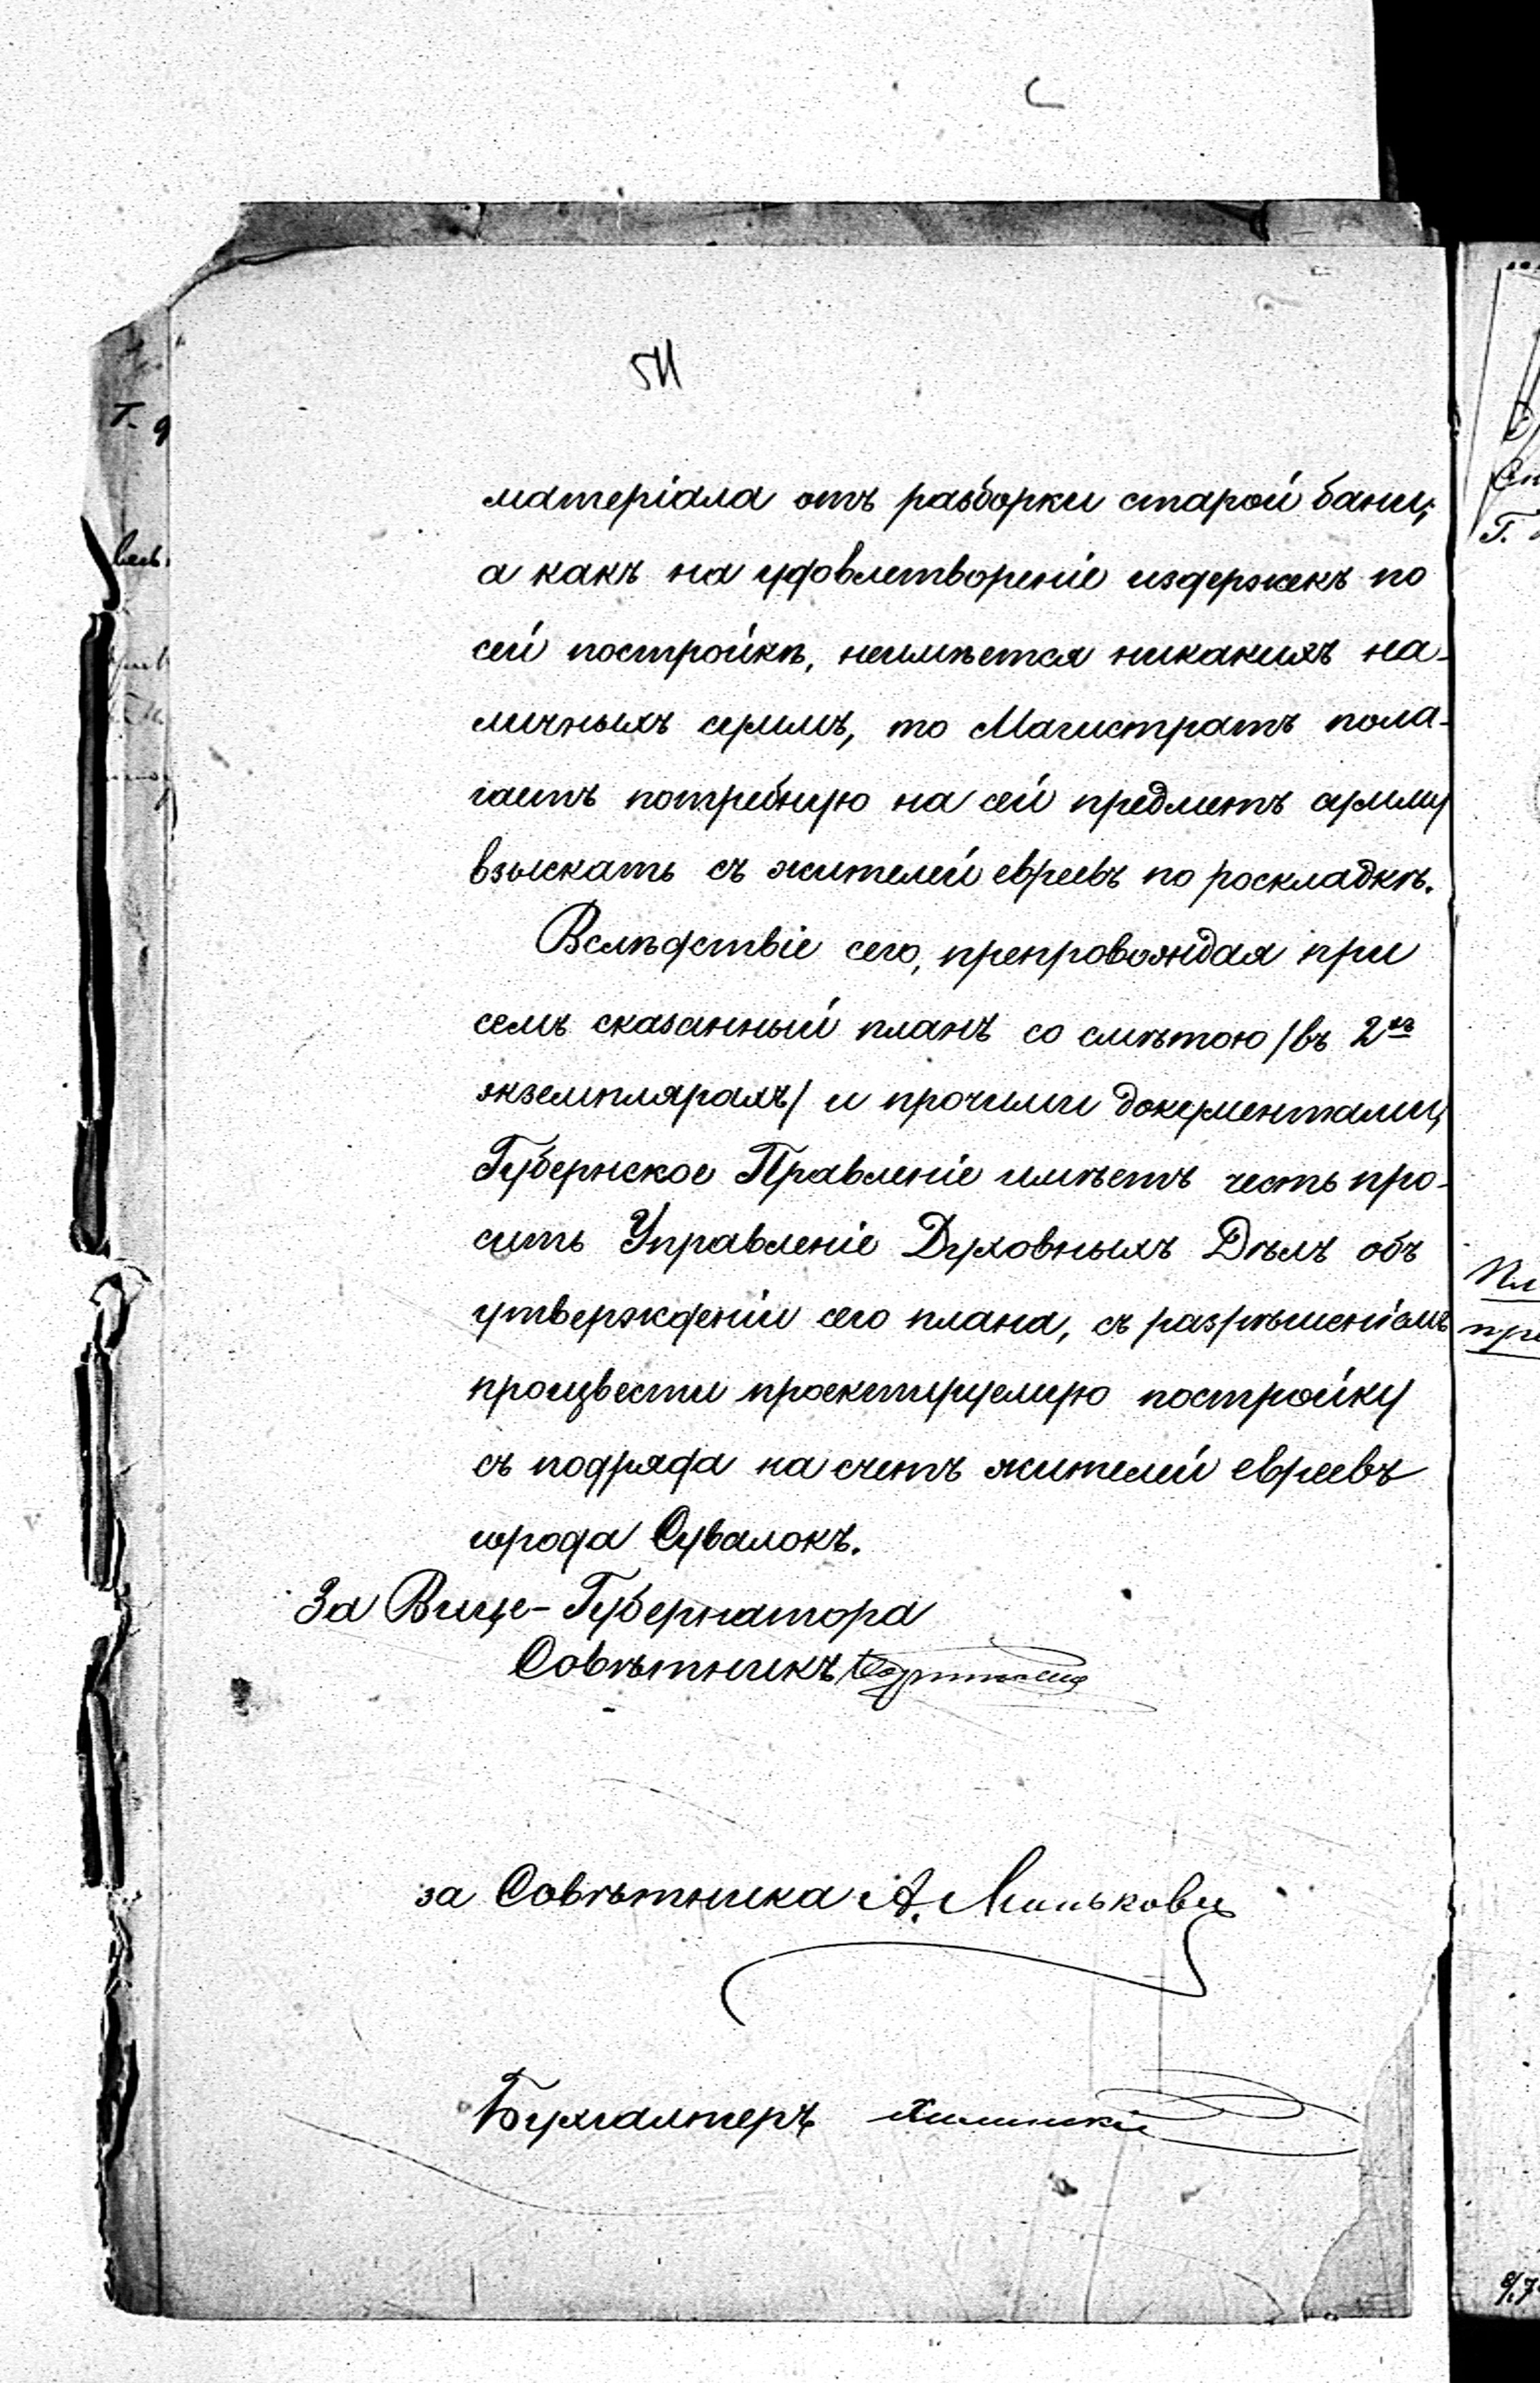 511
матеріала отъ разборки старой бани;
а какъ на удовлетвореніе издержекъ по
сей постройкѣ, неимѣется никакихъ на-
личныхъ суммъ, то Магистратъ пола-
гаетъ потребную на сей предметъ сумму
взыскать съ жителей евреевъ по роскладкѣ.
Вслѣдствіе сего, препровождая при
семъ сказанный планъ со смѣтою /въ 2хъ
экземплярахъ/ и прочими документами,
Губернское Правленіе имѣетъ честь про-
сить Управленіе Духовныхъ Дѣлъ объ
утвержденіи сего плана, съ разрѣшеніемъ
произвести проектируемую постройку
съ подряда на счетъ жителей евреевъ
города Сувалокъ.
За Вице-Губернатора
Совѣтникъ
за Совѣтника А. Миньковъ
Бухгалтеръ